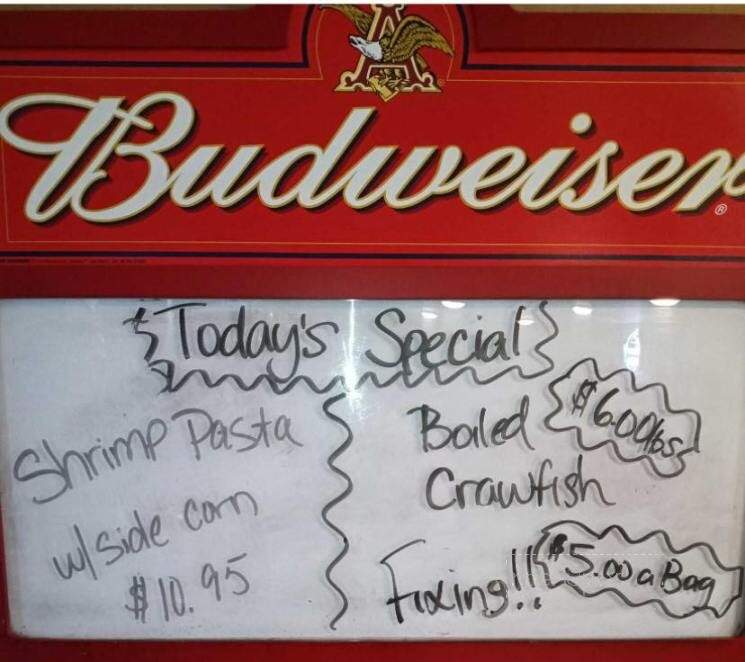 Budweiser
Today's Special
Shrimp Pasta
w/ side corn
$10.95
Boiled $6.00lbs
Crawfish
Fixing!! $5.00 a Bag